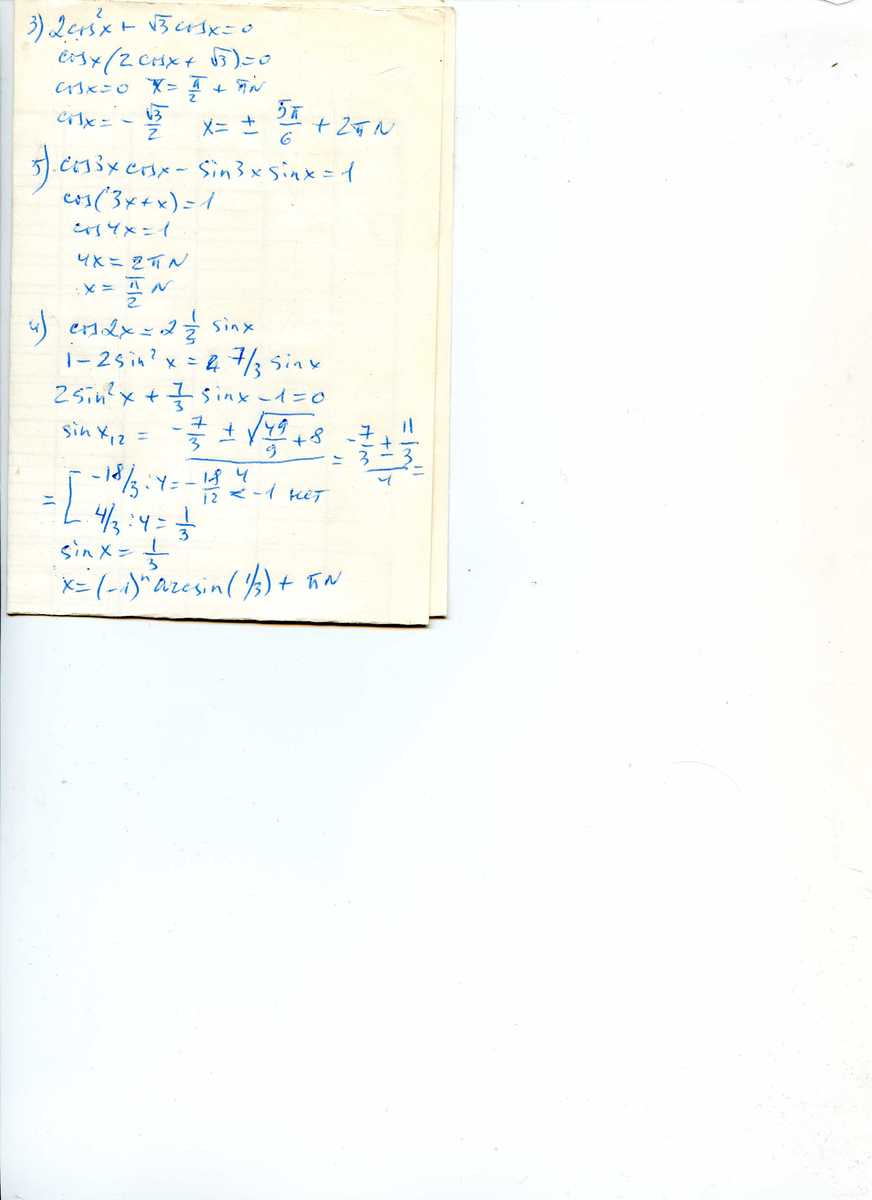 3) 2cos²x + √3 cosx = 0
cosx(2cosx + √3) = 0
cosx = 0 x = π/2 + πN
cosx = -√3/2 x = ± 5π/6 + 2πN
5) cos3x cosx - sin3x sinx = 1
cos(3x+x) = 1
cos4x = 1
4x = 2πN
x = π/2 N
4) cos2x = 2 1/3 sinx
1 - 2sin²x = 7/3 sinx
2sin²x + 7/3 sinx - 1 = 0
sin x₁₂ = (-7/3 ± √(49/9 + 8))/4 = (-7/3 ± 11/3)/4 =
= [ -18/3 : 4 = -18/12 < -1 нет
4/3 : 4 = 1/3
sinx = 1/3
x = (-1)ⁿ arcsin(1/3) + πN